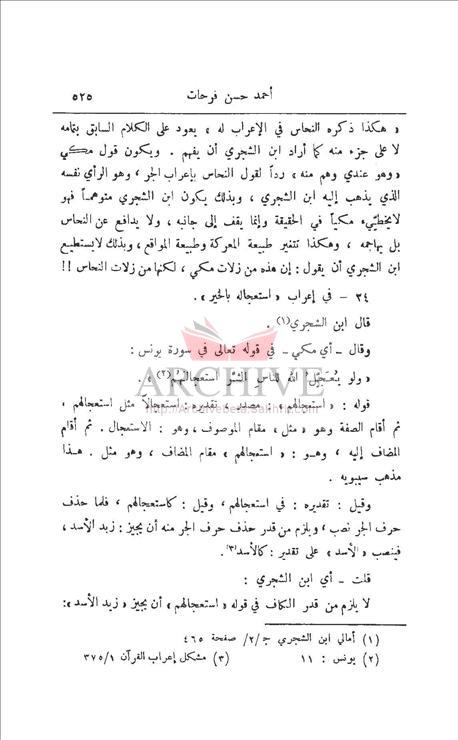 أحمد حسن فرحات ٥٢٥
« هكذا ذكره النحاس في الإعراب له » يعود على الكلام السابق بتمامه
لا على جزء منه كما أراد ابن الشجري أن يفهم . ويكون قول مكي
« وهو عندي وهم منه » رداً لقول النحاس بإعراب الجر ، وهو الرأي نفسه
الذي يذهب إليه ابن الشجري ، وبذلك يكون ابن الشجري متوهماً فهو
لايخطّىء مكياً في الحقيقة وإنما يقف إلى جانبه ، ولا يدافع عن النحاس
بل يهاجمه ، وهكذا تتغير طبيعة المعركة وطبيعة المواقع ، وبذلك لايستطيع
ابن الشجري أن يقول : إن هذه من زلات مكي ، لكنها من زلات النحاس !!
٢٤ - في إعراب « استعجاله بالخير » .
قال ابن الشجري(١) .
وقال ـ أي مكي ـ في قوله تعالى في سورة يونس :
« ولو يُعَجِّلُ الله للناسِ الشرَّ استعجالهم(٢) » .
ARCHIVE
قوله : « استعجالهم » : مصدر ، تقديره : استعجالاً مثل استعجالهم ،
ثم أقام الصفة وهو « مثل » مقام الموصوف ، وهو : الاستعجال . ثم أقام
المضاف إليه ، وهـو : « استعجالهم » مقام المضاف ، وهو مثل . هـذا
مذهب سيبويه .
وقيل : تقديره : في استعجالهم ، وقيل : كاستعجالهم ، فلما حذف
حرف الجر نصب ، ويلزم من قدر حذف حرف الجر منه أن يجيز : زيد الأسد ،
فينصب « الأسد » على تقدير : كالأسد(٣) .
قلت ـ أي ابن الشجري :
لا يلزم من قدر الكاف في قوله « استعجالهم » أن يجيز « زيد الأسد » :
(١) أمالي ابن الشجري ج/٢/ صفحة ٤٦٥
(٢) يونس : ١١ (٣) مشكل إعراب القرآن ٣٧٥/١